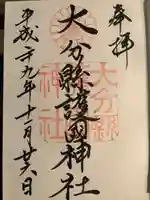 奉拝
大分縣護國神社
平成廿九年十一月廿六日
大分縣
神社